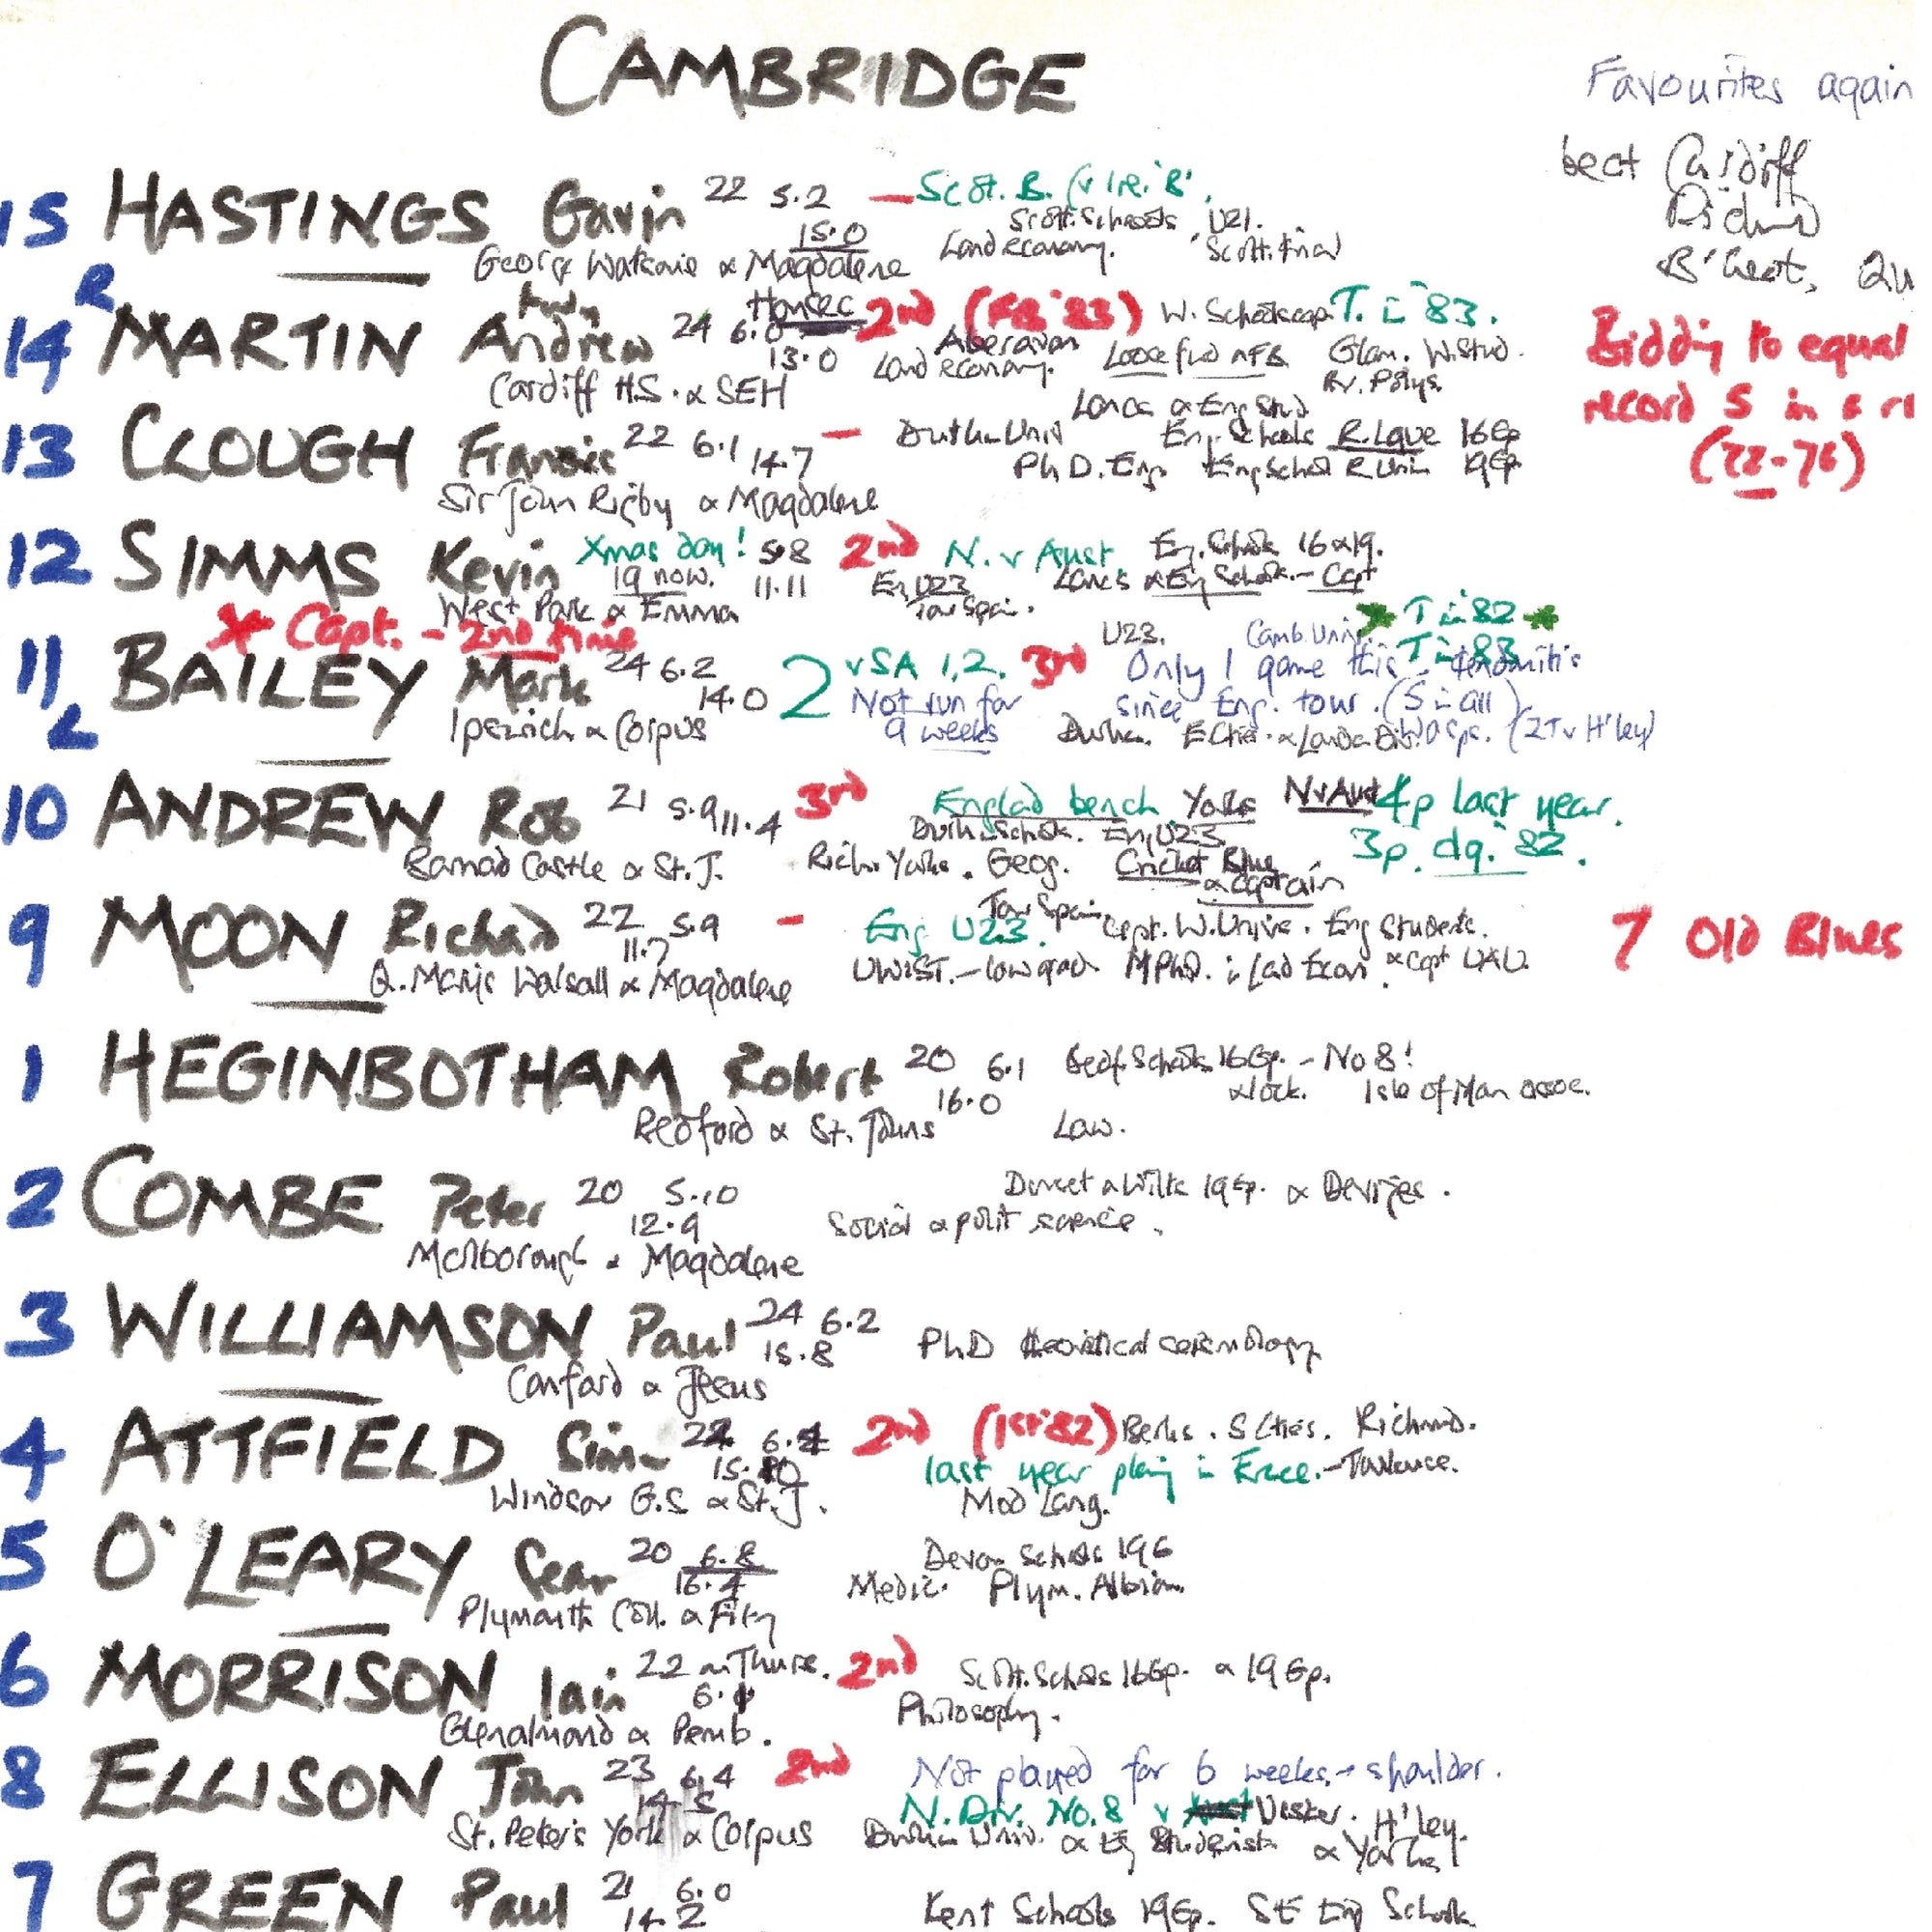 CAMBRIDGE
Favourites again
beat Cardiff
15 HASTINGS Gavin 22 5.2 — Scot. B. (v Ire. 'B'.
15.0 Scott. Schools, U21.
Land economy.
& Magdalene
R
14 MARTIN Andrew 24 6.0 2nd (FB '83) W. Schools cap T. in '83.
13.0 Aberavon
Land economy. Glam. W. Stud.
Cardiff HS. & SEH
Bidding to equal
record 5 in a
(72-76)
Lancs & Eng Stud
13 CLOUGH Francis 22 6.1 14.7 — Durh. Univ Eng. Schools R. Lgue 16Gp
Ph D. Eng. Eng School R Uni 19Gp
Sir John Rigby & Magdalene
12 SIMMS Kevin Xmas day! 5.8 2nd N. v Aust. Eng. Schools 16 & 19.
19 now. 11.11 En U23 Lancs & Eng Schools. - Capt
West Park & Emma Tour Spain.
* Capt. - 2nd time
* T in 82 *
U23. Camb. Univ. T in 83
11 BAILEY Mark 24 6.2 2 v SA 1,2. 3rd Only 1 game this
L 14.0 Not run for since Eng. tour. (5 in all)
Ipswich & Corpus 9 weeks Durham. Wasps. (2T v H'ley)
10 ANDREW Rob 21 5.9 11.4 3rd England bench. Yorks N v Aust 4p last year.
Durh. Schools. Eng U23 3p. dg. '82.
Barnard Castle & St. J. Rich. Yorks. Geog. Cricket Blue
& Captain
9 MOON Richard 22 5.9 - Eng U23. Tour Spain. Capt. W. Univs. Eng Students.
11.7 UWIST. - low grade M Phil. in Land Econ. & Capt UAU.
Q. Mary's Walsall & Magdalene
7 Old Blues
1 HEGINBOTHAM Robert 20 6.1 Bedf. Schools 16Gp. - No 8!
16.0 & lock. Isle of Man assoc.
Bedford & St. Johns Law.
2 COMBE Peter 20 5.10 Dorset & Wilts 19Gp. & Devizes.
12.9 Social & polit science.
Marlborough & Magdalene
3 WILLIAMSON Paul 24 6.2
15.8 PhD theoretical cosmology
Canford & Jesus
4 ATTFIELD Simon 2nd (1st '82) Berks. S Cties. Richmd.
last year playing in France. - Toulouse.
Windsor G.S & St. J. Mod Lang.
5 O'LEARY Sean 20 6.8 Devon Schools 19G
16.4 Medic. Plym. Albion.
Plymouth Coll. & Fitz
6 MORRISON Iain 22 on Thurs. 2nd Scott. Schools 16Gp. & 19Gp.
Philosophy.
Glenalmond & Pemb.
8 ELLISON John 23 6.4 2nd Not played for 6 weeks - shoulder.
14.5 N. Div. No. 8 v Ulster. H'ley.
St. Peter's York & Corpus Durham Univ. & Eng Students & Yorks
7 GREEN Paul 21 6.0
14.2 Kent Schools 19Gp. SE Eng Schools.